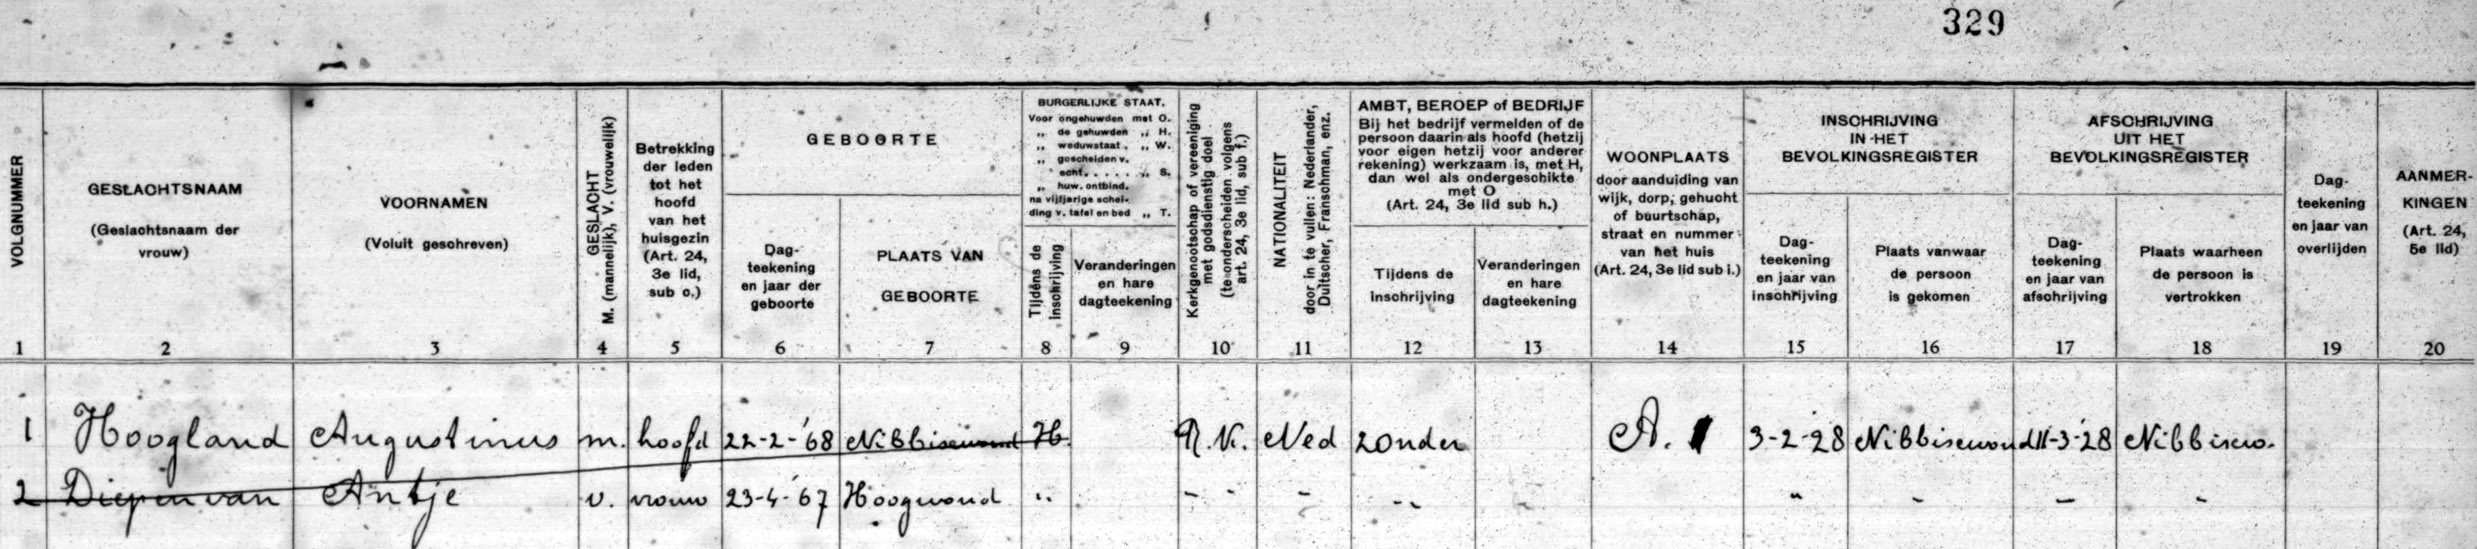 329
VOLGNUMMER
GESLACHTSNAAM
(Geslachtsnaam der
vrouw)
VOORNAMEN
(Voluit geschreven)
GESLACHT
M. (mannelijk), V. (vrouwelijk)
Betrekking
der leden
tot het
hoofd
van het
huisgezin
(Art. 24,
3e lid,
sub c.)
GEBOORTE
Dag-
teekening
en jaar der
geboorte
PLAATS VAN
GEBOORTE
BURGERLIJKE STAAT.
Voor ongehuwden met O.
„ de gehuwden „ H.
„ weduwstaat. „ W.
„ gescheiden v.
echt. . . . . . „ S.
„ huw. ontbind.
na vijfjarige schei-
ding v. tafel en bed „ T.
Tijdens de
inschrijving
Veranderingen
en hare
dagteekening
Kerkgenootschap of vereeniging
met godsdienstig doel
(te onderscheiden volgens
art. 24, 3e lid, sub f.)
NATIONALITEIT
door in te vullen: Nederlander,
Duitscher, Franschman, enz.
AMBT, BEROEP of BEDRIJF
Bij het bedrijf vermelden of de
persoon daarin als hoofd (hetzij
voor eigen hetzij voor anderer
rekening) werkzaam is, met H,
dan wel als ondergeschikte
met O
(Art. 24, 3e lid sub h.)
Tijdens de
inschrijving
Veranderingen
en hare
dagteekening
WOONPLAATS
door aanduiding van
wijk, dorp, gehucht
of buurtschap,
straat en nummer
van het huis
(Art. 24, 3e lid sub i.)
INSCHRIJVING
IN HET
BEVOLKINGSREGISTER
Dag-
teekening
en jaar van
inschrijving
Plaats vanwaar
de persoon
is gekomen
AFSCHRIJVING
UIT HET
BEVOLKINGSREGISTER
Dag-
teekening
en jaar van
afschrijving
Plaats waarheen
de persoon is
vertrokken
Dag-
teekening
en jaar van
overlijden
AANMER-
KINGEN
(Art. 24,
5e lid)
1 2 3 4 5 6 7 8 9 10 11 12 13 14 15 16 17 18 19 20
1 Hoogland Augustinus m. hoofd 22-2-'68 Nibbixwoud H. R.K. Ned zonder A. 3-2-28 Nibbixwoud 11-3-'28 Nibbixwo.
2 Diepen van Antje v. vrouw 23-4-'67 Hoogwoud " - - - - - " - - -